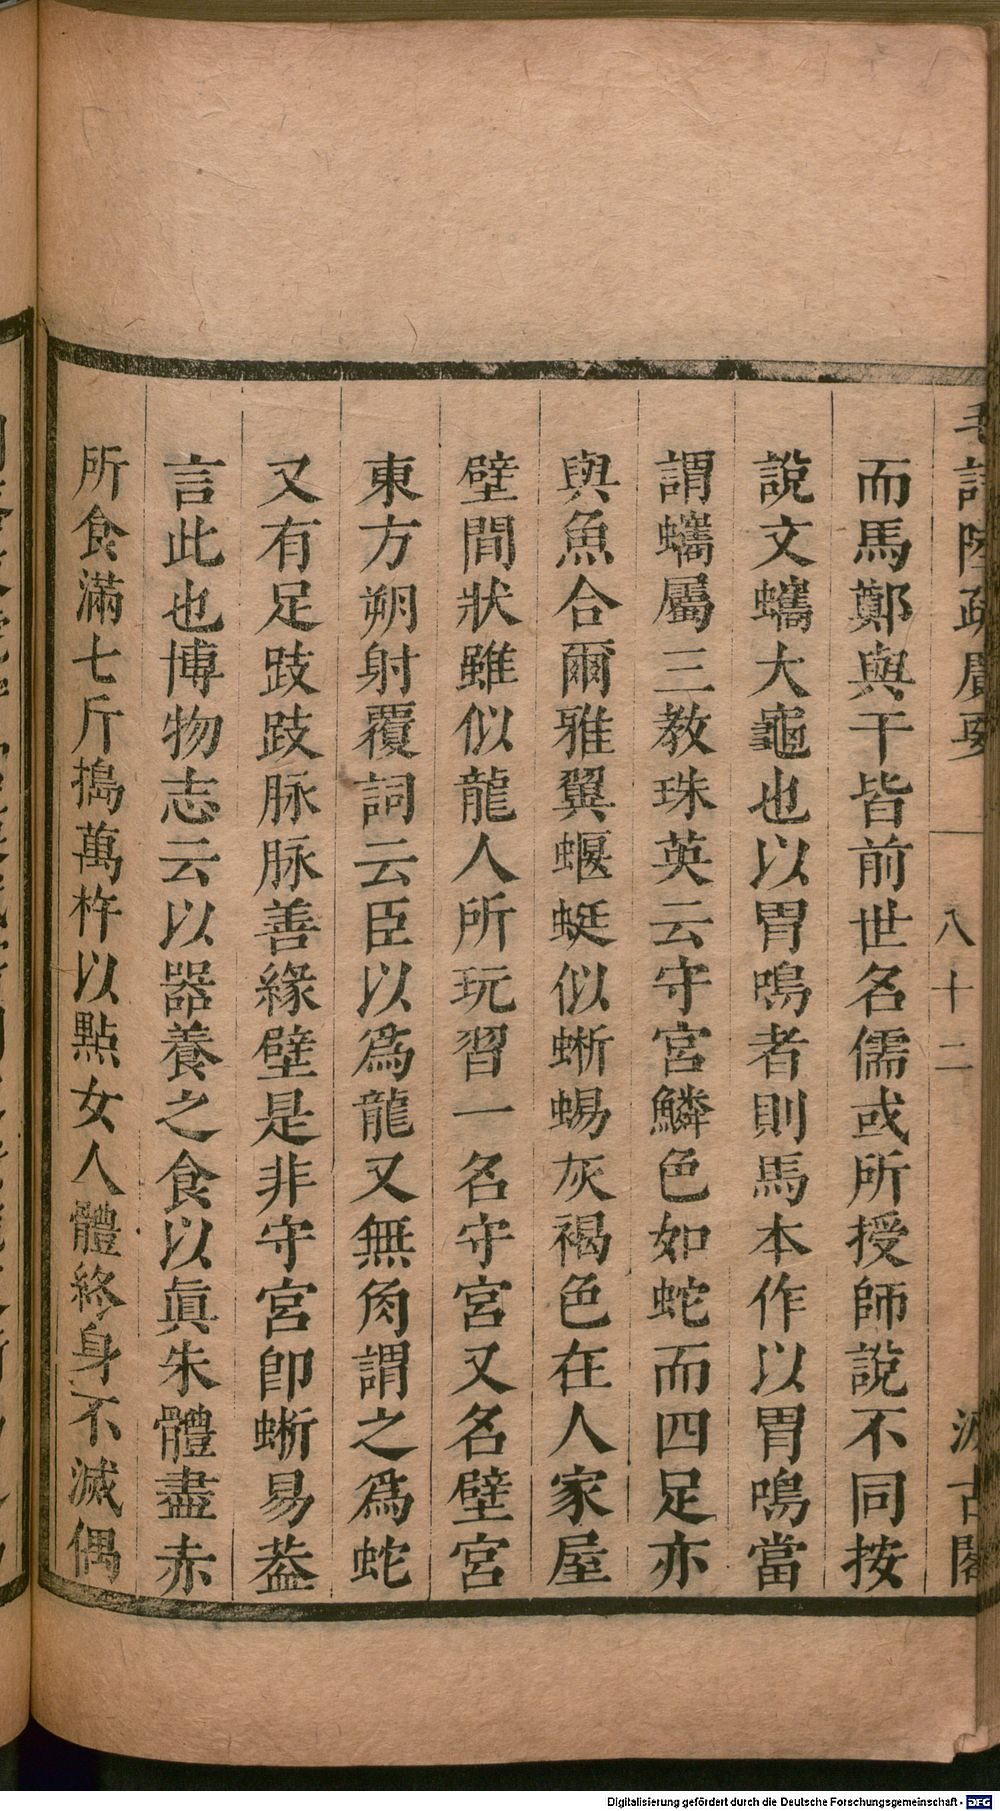 毛詩陸疏廣要 八十二 汲古閣
而馬鄭與干皆前世名儒或所授師說不同按
說文蠵大龜也以胃鳴者則馬本作以胃鳴當
謂蠵屬三教珠英云守宮鱗色如蛇而四足亦
與魚合爾雅翼蝘蜓似蜥蜴灰褐色在人家屋
壁間狀雖似龍人所玩習一名守宮又名壁宮
東方朔射覆詞云臣以爲龍又無角謂之爲蛇
又有足跂跂脉脉善緣壁是非守宮卽蜥易葢
言此也博物志云以器養之食以眞朱體盡赤
所食滿七斤搗萬杵以點女人體終身不滅偶
Digitalisierung gefördert durch die Deutsche Forschungsgemeinschaft - DFG